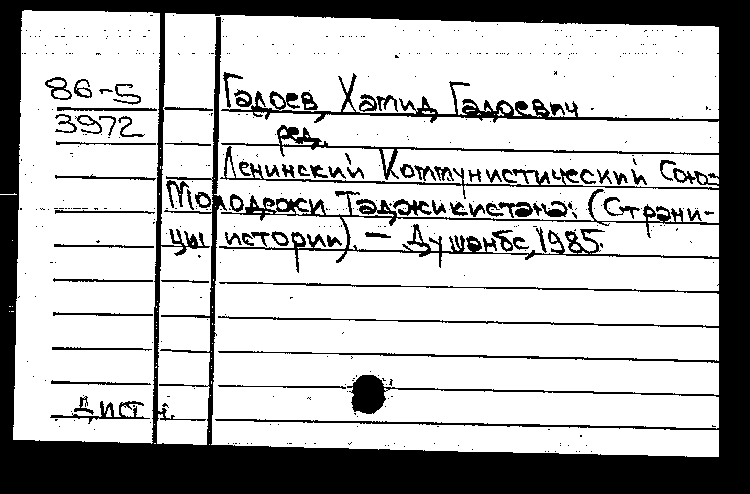 86-5
3972
Гадоев, Хамид Гадоевич
ред.
Ленинский Коммунистический Союз
Молодежи Таджикистана: (Страни-
цы истории). - Душанбе, 1985.